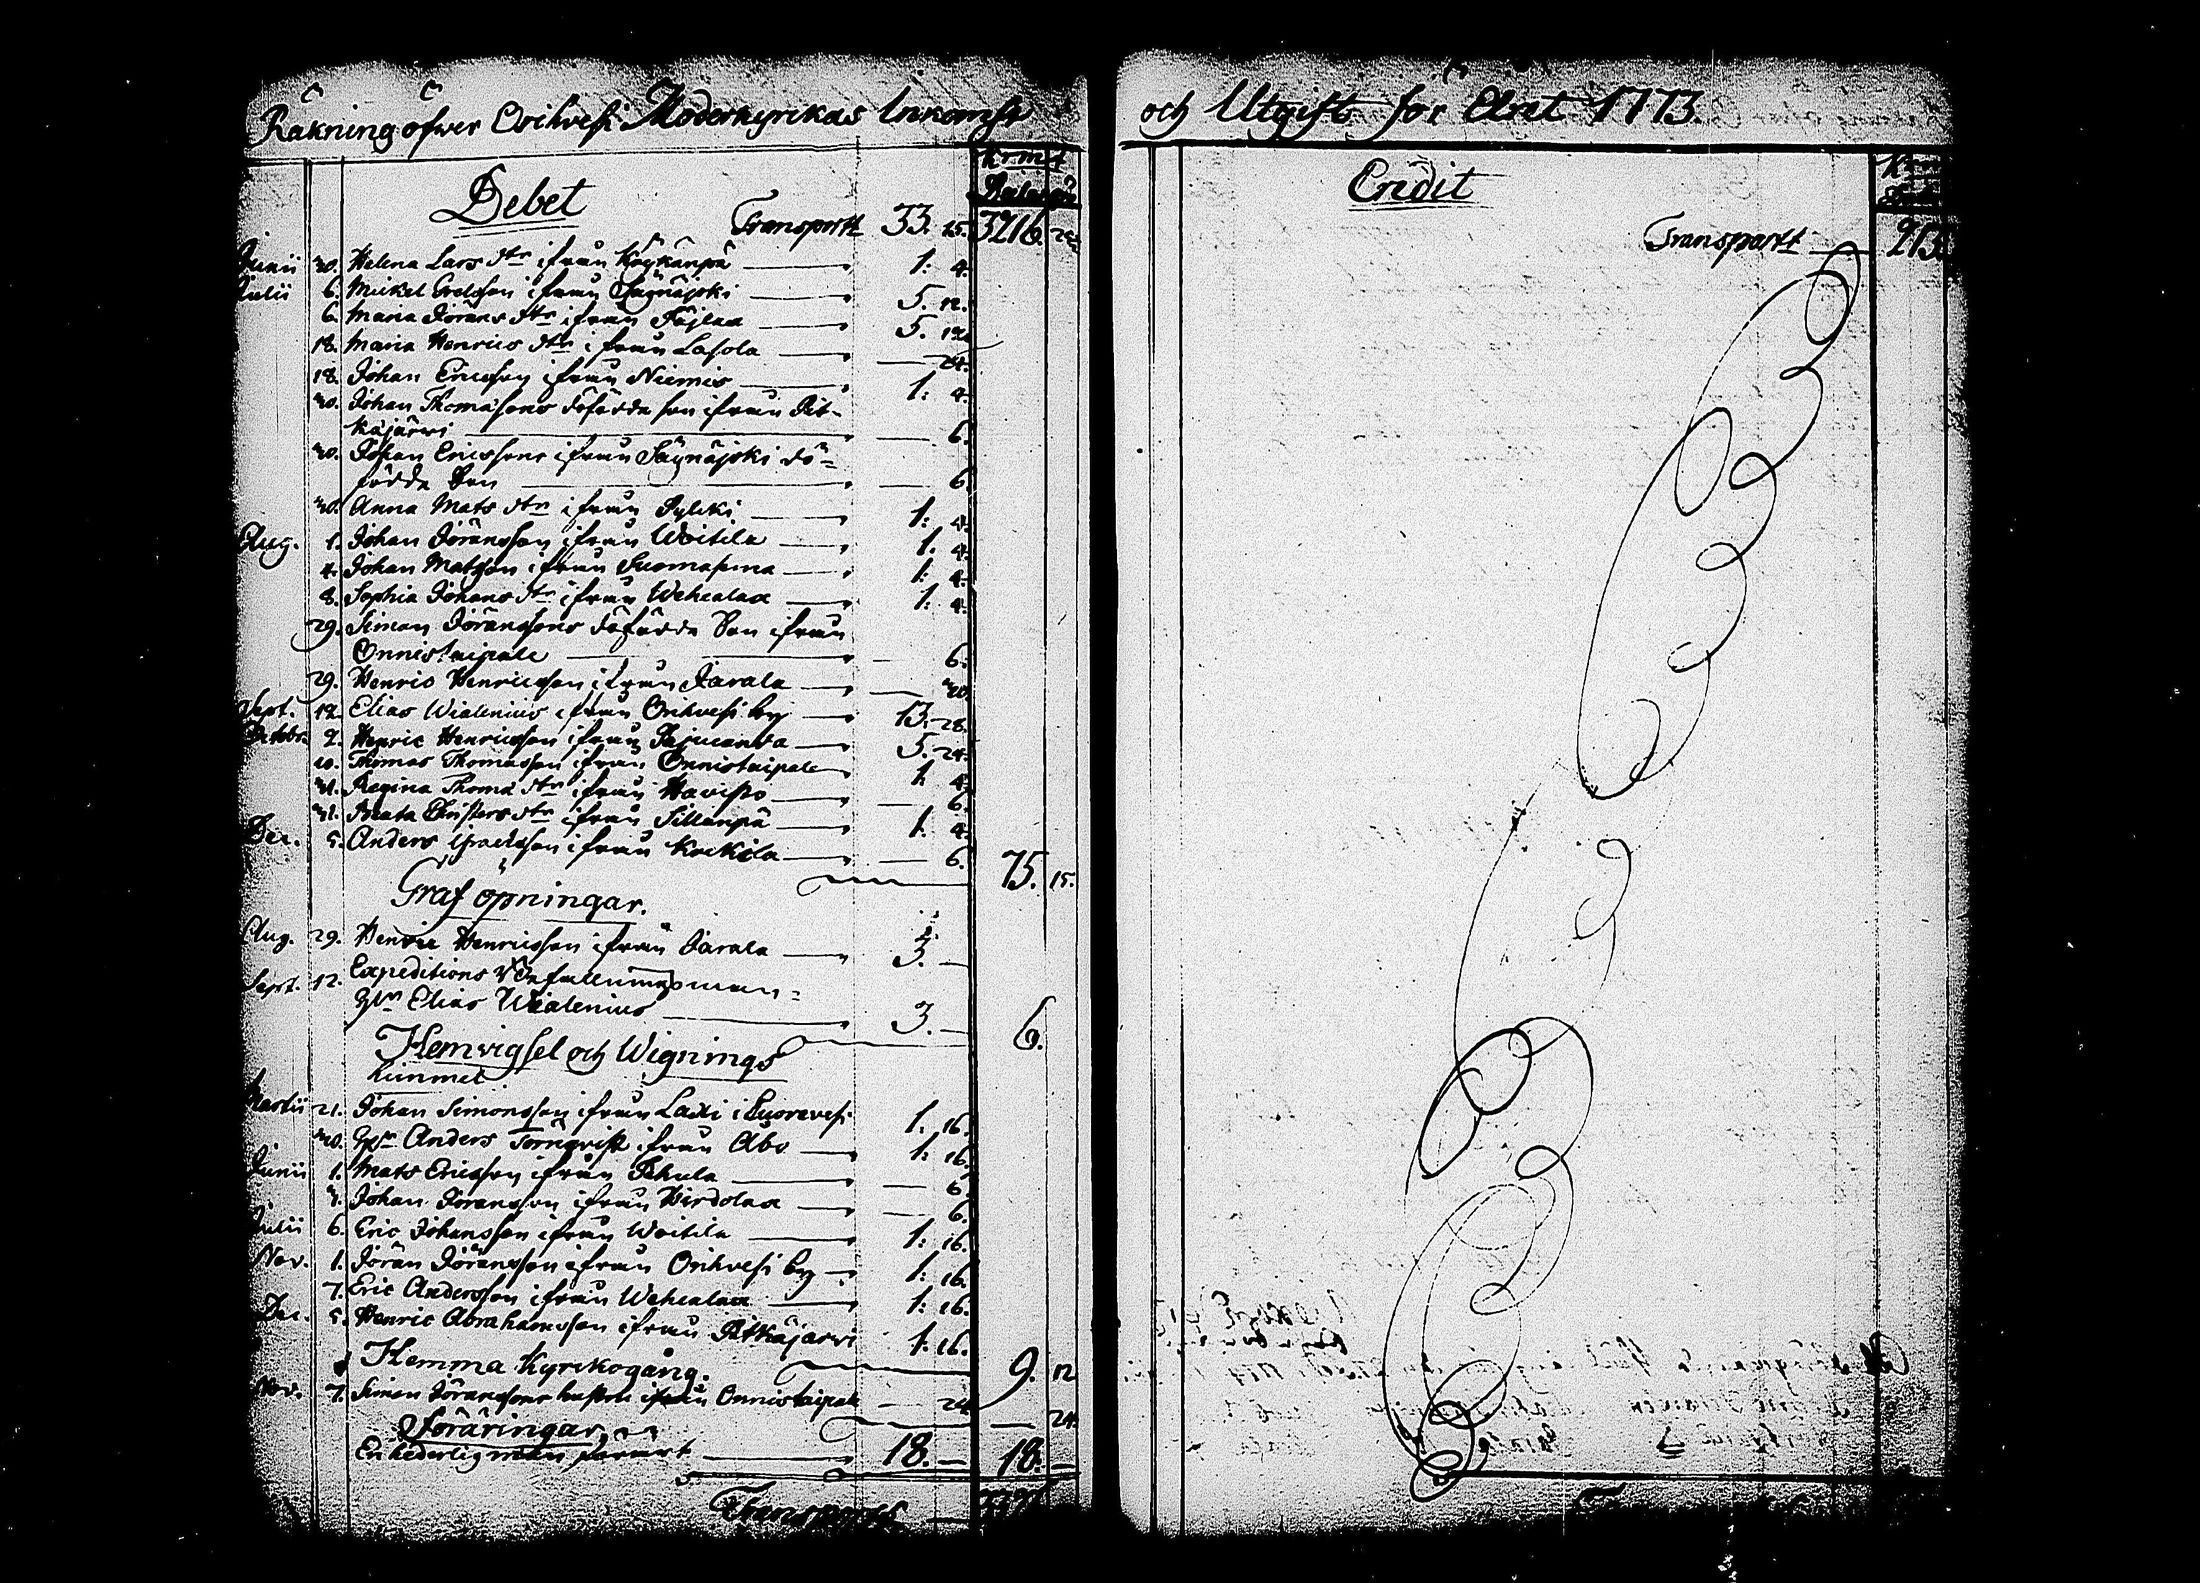 Räkning öfwer Orihvesi Moderkyrkas Inkomst
och Utgift för Året 1773.
Debet
Transportt 33. 25. 3216.
Junii 20. Helena Lars dtr ifrån Köykänpä 1: 4.
Julii 6. Mickel ifrån Säynäjoki 5. 12.
6. Maria Jörans dtr ifrån 5. 12.
18. Maria Henrics dtr ifrån Lasola 24.
18. Johan Ericsson ifrån Niemis 1: 4.
20. Johan Thomasons döfödda son ifrån Pit-
käjärwi 6.
20. Johan Ericssons ifrån Säynäjoki dö-
födde Son 6.
20. Anna Mats dtr ifrån Pylcki 1: 4.
Aug. 1. Johan Jöransson ifrån Woitila 1. 4.
4. Johan Matsson ifrån Suomasema 1: 4.
8. Sophia Johans dtr ifrån Wehcalax 1: 4.
29. Simon Jöranssons döfödda Son ifrån
Onnistaipale 6.
29. Henric Henricsson ifrån Jarala 20.
Sept. 12. Elias Wialenius ifrån Orihvesi by 13. 28.
Octobr. 2. Henric Henricsson ifrån Pajucanda 5. 24.
10. Thomas Thomasson ifrån Onnistaipale 1. 4.
31. Regina Thomæ dtr ifrån Havisto 6.
31. Beata Christers dtr ifrån Sillanpä 1. 4.
Dec. 5. Anders Israelsson ifrån Kockila 6. 75. 15.
Graf öpningar.
Aug. 29. Henric Henricsson ifrån Jarala 3.
Sept. 12. Expeditions Befallningsman-
Hr Elias Wialenius 3. 6.
Hemvigsel och Wignings
himmel
Martii 21. Johan Simonsson ifrån Ladi i Kuorevesi 1. 16.
20. Hr Anders Törnqvist ifrån Åbo 1. 16.
Junii 1. Mats Ericsson ifrån Pehula 6.
Johan Jöransson ifrån Hirdolax 6.
Julii 6. Eric Johansson ifrån Woitila 1: 16.
Nov. 1. Jöran Jöransson ifrån Orihvesi by 1: 16.
7. Eric Andersson ifrån Wehcalax 1: 16.
Dec. 5. Henric Abrahamsson ifrån Pitkäjärvi 1. 16.
Hemma Kyrkogång. 9. 12
Nov. 7. Simon Jöranssons hustru ifrån Onnistaipale 24. 24.
Föräringar
En hederlig man förärt 18. 18.
Transportt
Credit
Transportt